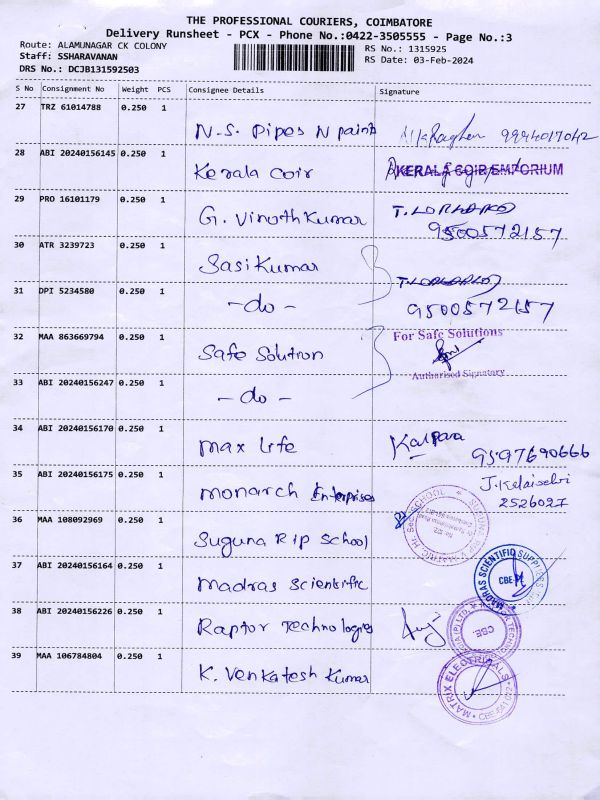 THE PROFESSIONAL COURIERS, COIMBATORE
Delivery Runsheet - PCX - Phone No.:0422-3505555 - Page No.:3
Route: ALAMUNAGAR CK COLONY
Staff: SSHARAVANAN
DRS No.: DCJB131592503
RS No.: 1315925
RS Date: 03-Feb-2024
S No Consignment No Weight PCS Consignee Details Signature
27 TRZ 61014788 0.250 1
N.S. Pipes N paint 9994017042
28 ABI 20240156145 0.250 1
Kerala Coir KERALA COIR EMPORIUM
29 PRO 16101179 0.250 1
G. Vinoth Kumar
9500572157
30 ATR 3239723 0.250 1
Sasi Kumar
31 DPI 5234580 0.250 1
- do - 9500572157
32 MAA 863669794 0.250 1
For Safe Solutions
Safe Solution
Authorised Signatory
33 ABI 20240156247 0.250 1
- do -
34 ABI 20240156170 0.250 1
Max Life Kalpana 9597690666
35 ABI 20240156175 0.250 1
Monarch Enterprises J. Kalaiselvi
2526027
36 MAA 108092969 0.250 1
Suguna Rip School
37 ABI 20240156164 0.250 1
Madras Scientific MADRAS SCIENTIFIC SUPPLIES
CBE-
38 ABI 20240156226 0.250 1
Raptor Technologies
CBE.
39 MAA 106784804 0.250 1
K. Venkatesh Kumar MATRIX ELECTRICALS